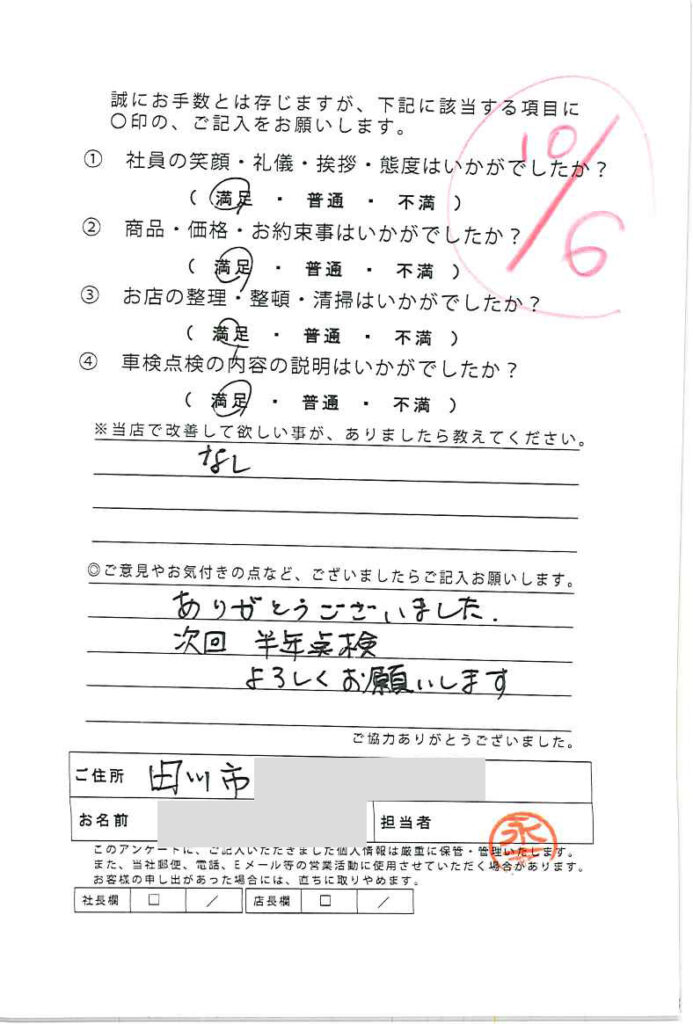 誠にお手数とは存じますが、下記に該当する項目に
〇印の、ご記入をお願いします。
10/6
① 社員の笑顔・礼儀・挨拶・態度はいかがでしたか？
( 満足 ・ 普通 ・ 不満 )
② 商品・価格・お約束事はいかがでしたか？
( 満足 ・ 普通 ・ 不満 )
③ お店の整理・整頓・清掃はいかがでしたか？
( 満足 ・ 普通 ・ 不満 )
④ 車検点検の内容の説明はいかがでしたか？
( 満足 ・ 普通 ・ 不満 )
※当店で改善して欲しい事が、ありましたら教えてください。
なし
◎ご意見やお気付きの点など、ございましたらご記入お願いします。
ありがとうございました.
次回 半年点検
よろしくお願いします
ご協力ありがとうございました。
ご住所 田川市
お名前 担当者 永
このアンケートに、ご記入いただきました個人情報は厳重に保管・管理いたします。
また、当社郵便、電話、Eメール等の営業活動に使用させていただく場合があります。
お客様の申し出があった場合には、直ちに取りやめます。
社長欄 □ ／ 店長欄 □ ／